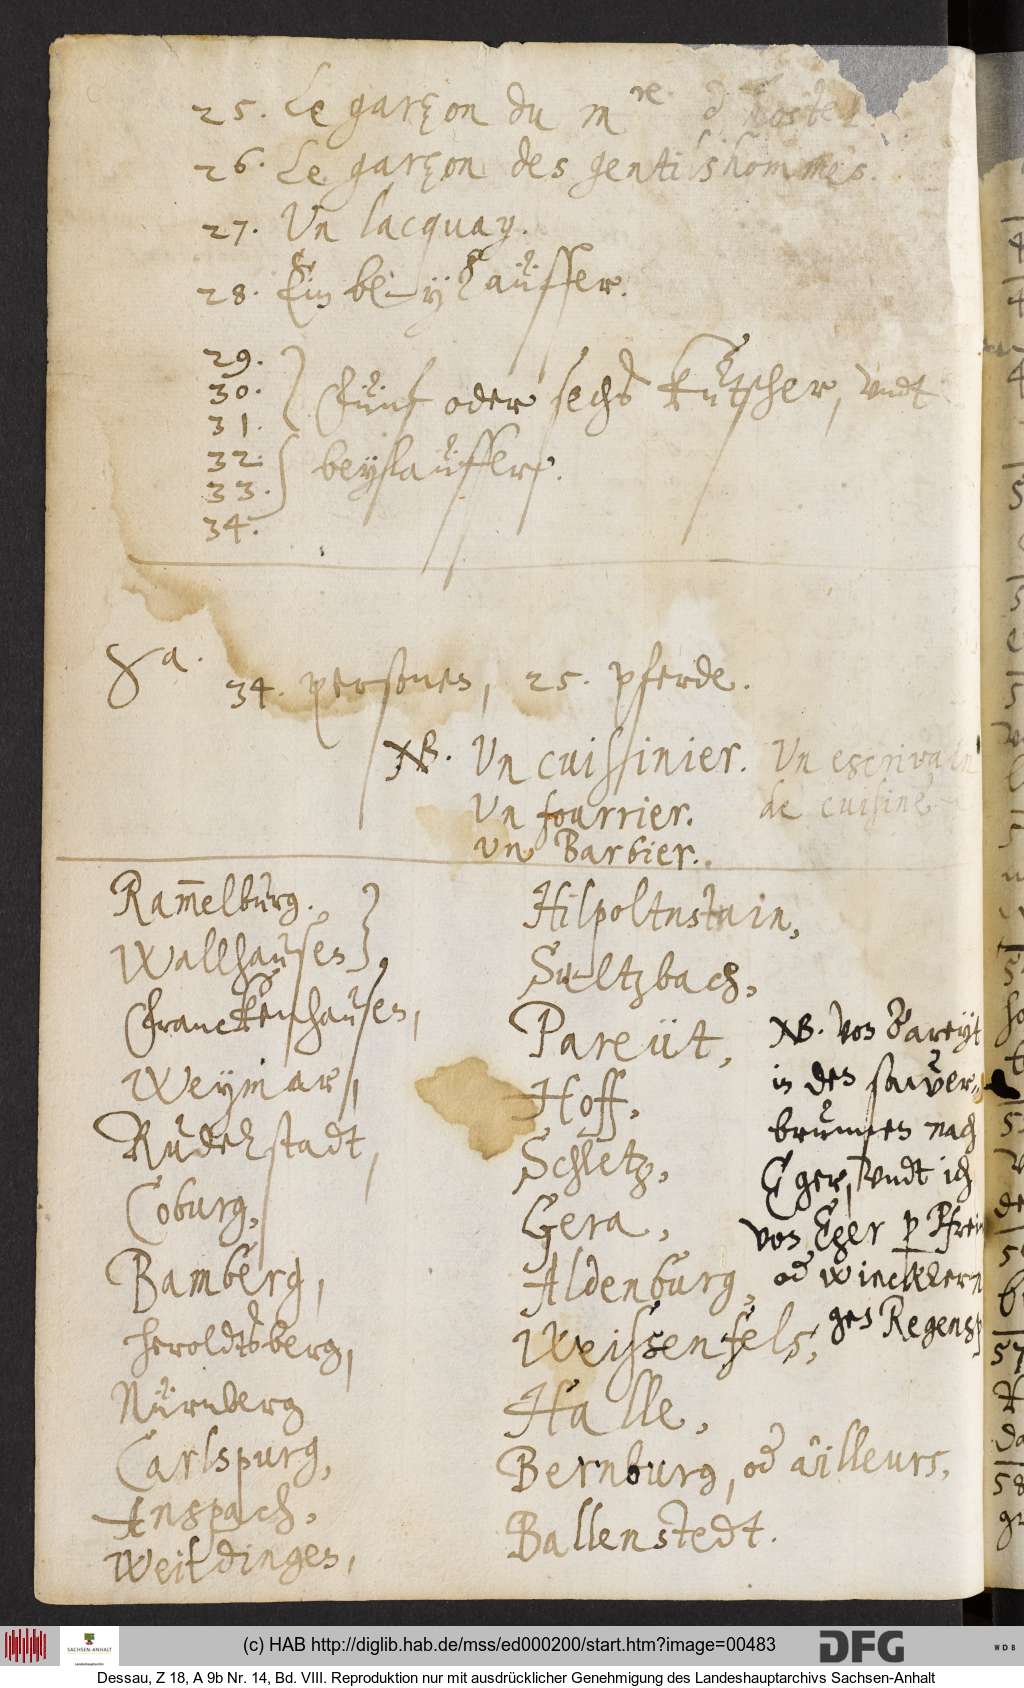 25. Le garçon du m.re d'hostel.
26. Le garçon des gentilshommes.
27. Un lacquay.
28. Ein beyläuffer.
29.
30.
31.
32.
33.
34.
Fünf oder sechs kützscher, undt
beyläuffers.
34. personen, 25. pferde.
NB. Un cuissinier. Un escrivain
Un fourrier. de cuisine
un Barbier.
Ram̄elburg.
Wallhausen,
Franckenhausen,
Weymar,
Rudelstadt,
Coburg,
Bamberg,
heroldtsberg,
Nürnberg
Carlspurg,
Anspach,
Weildingen,
Hilpoltnstain,
Sultzbach,
Pareüt,
Hoff,
Schletz,
Gera,
Aldenburg,
Weissenfels,
Halle,
Bernburg, od ailleurs,
Ballenstedt.
NB. von Pareyt
in den saur
brunnen nach
Eger, undt ich
von Eger p Pfrei
od Wincklern
gen Regensp
(c) HAB http://diglib.hab.de/mss/ed000200/start.htm?image=00483
SACHSEN-ANHALT
DFG
WDB
Dessau, Z 18, A 9b Nr. 14, Bd. VIII. Reproduktion nur mit ausdrücklicher Genehmigung des Landeshauptarchivs Sachsen-Anhalt